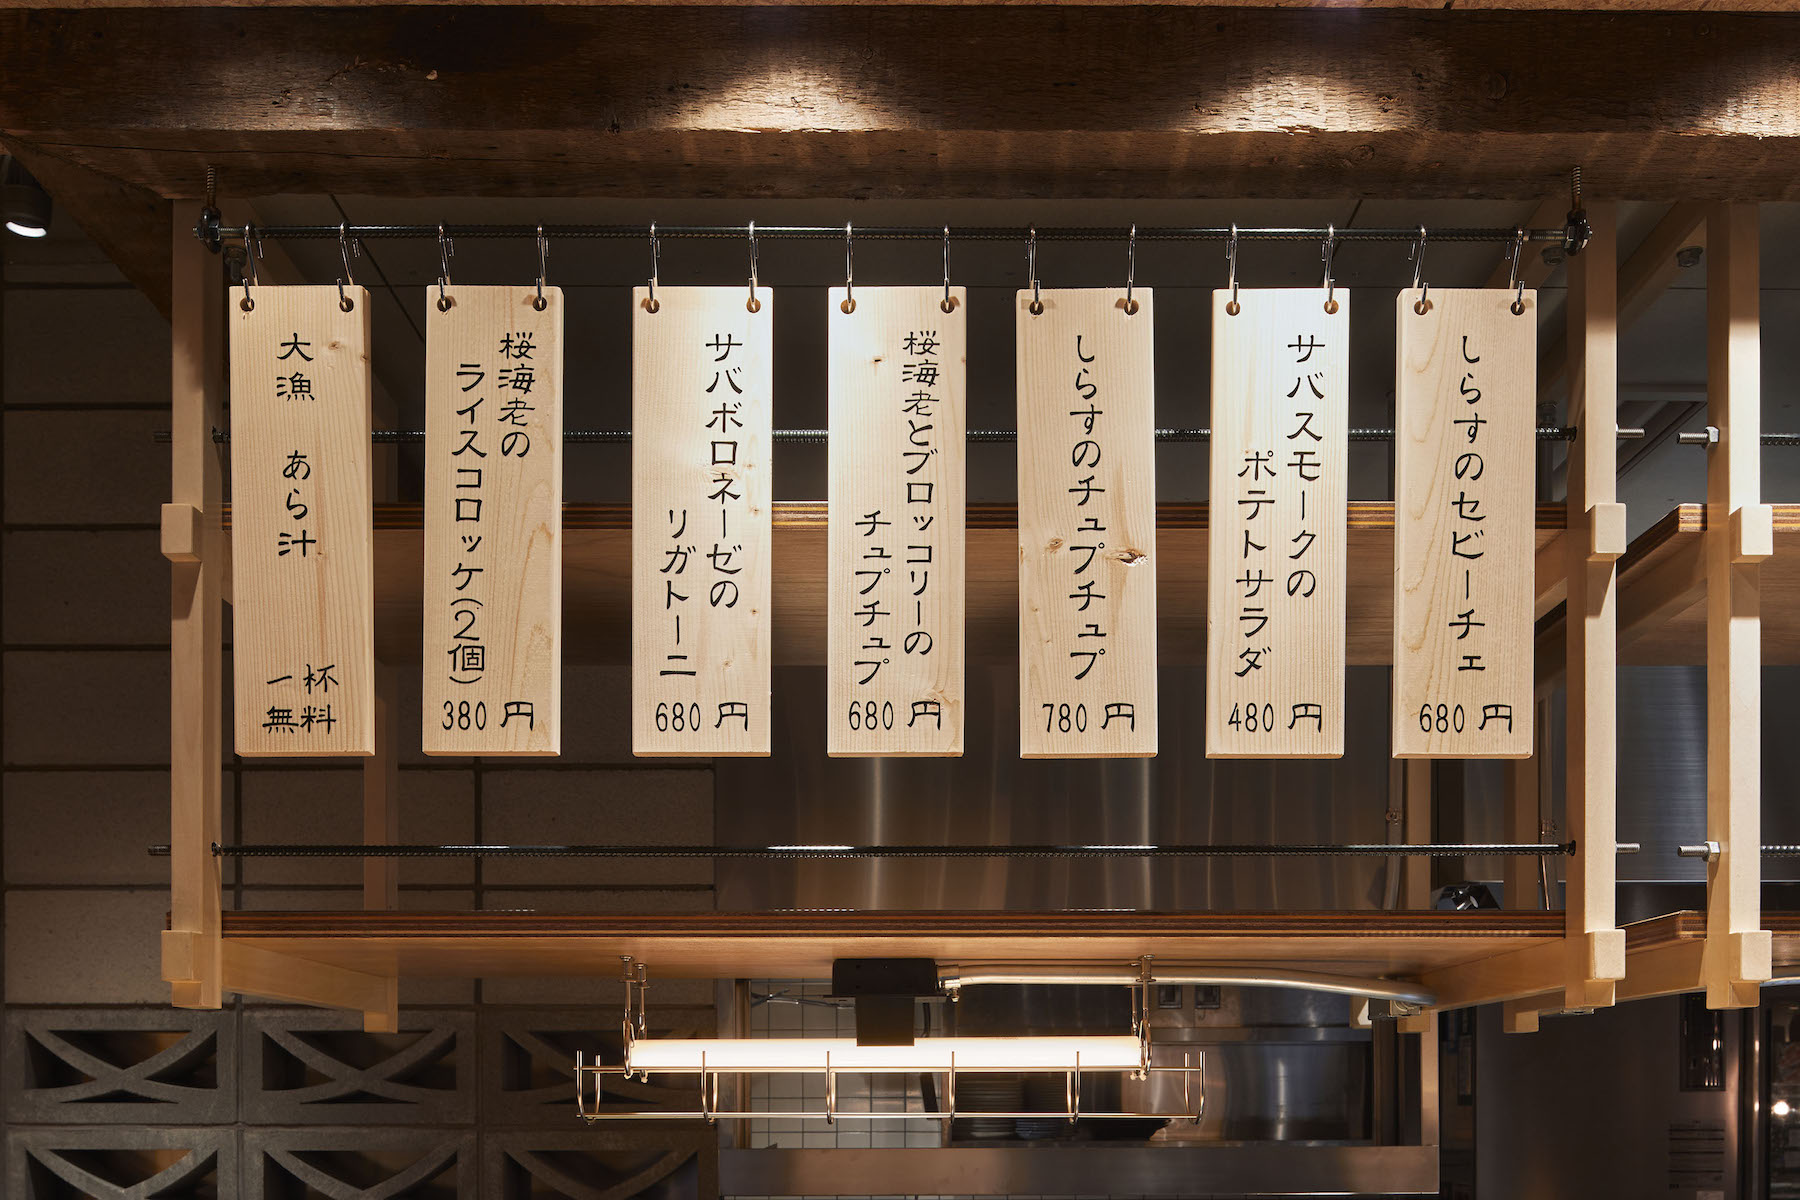 しらすのセビーチェ
680円
サバスモークの
ポテトサラダ
480円
しらすのチュプチュプ
780円
桜海老とブロッコリーの
チュプチュプ
680円
サバボロネーゼの
リガトーニ
680円
桜海老の
ライスコロッケ(2個)
380円
大漁 あら汁
一杯
無料